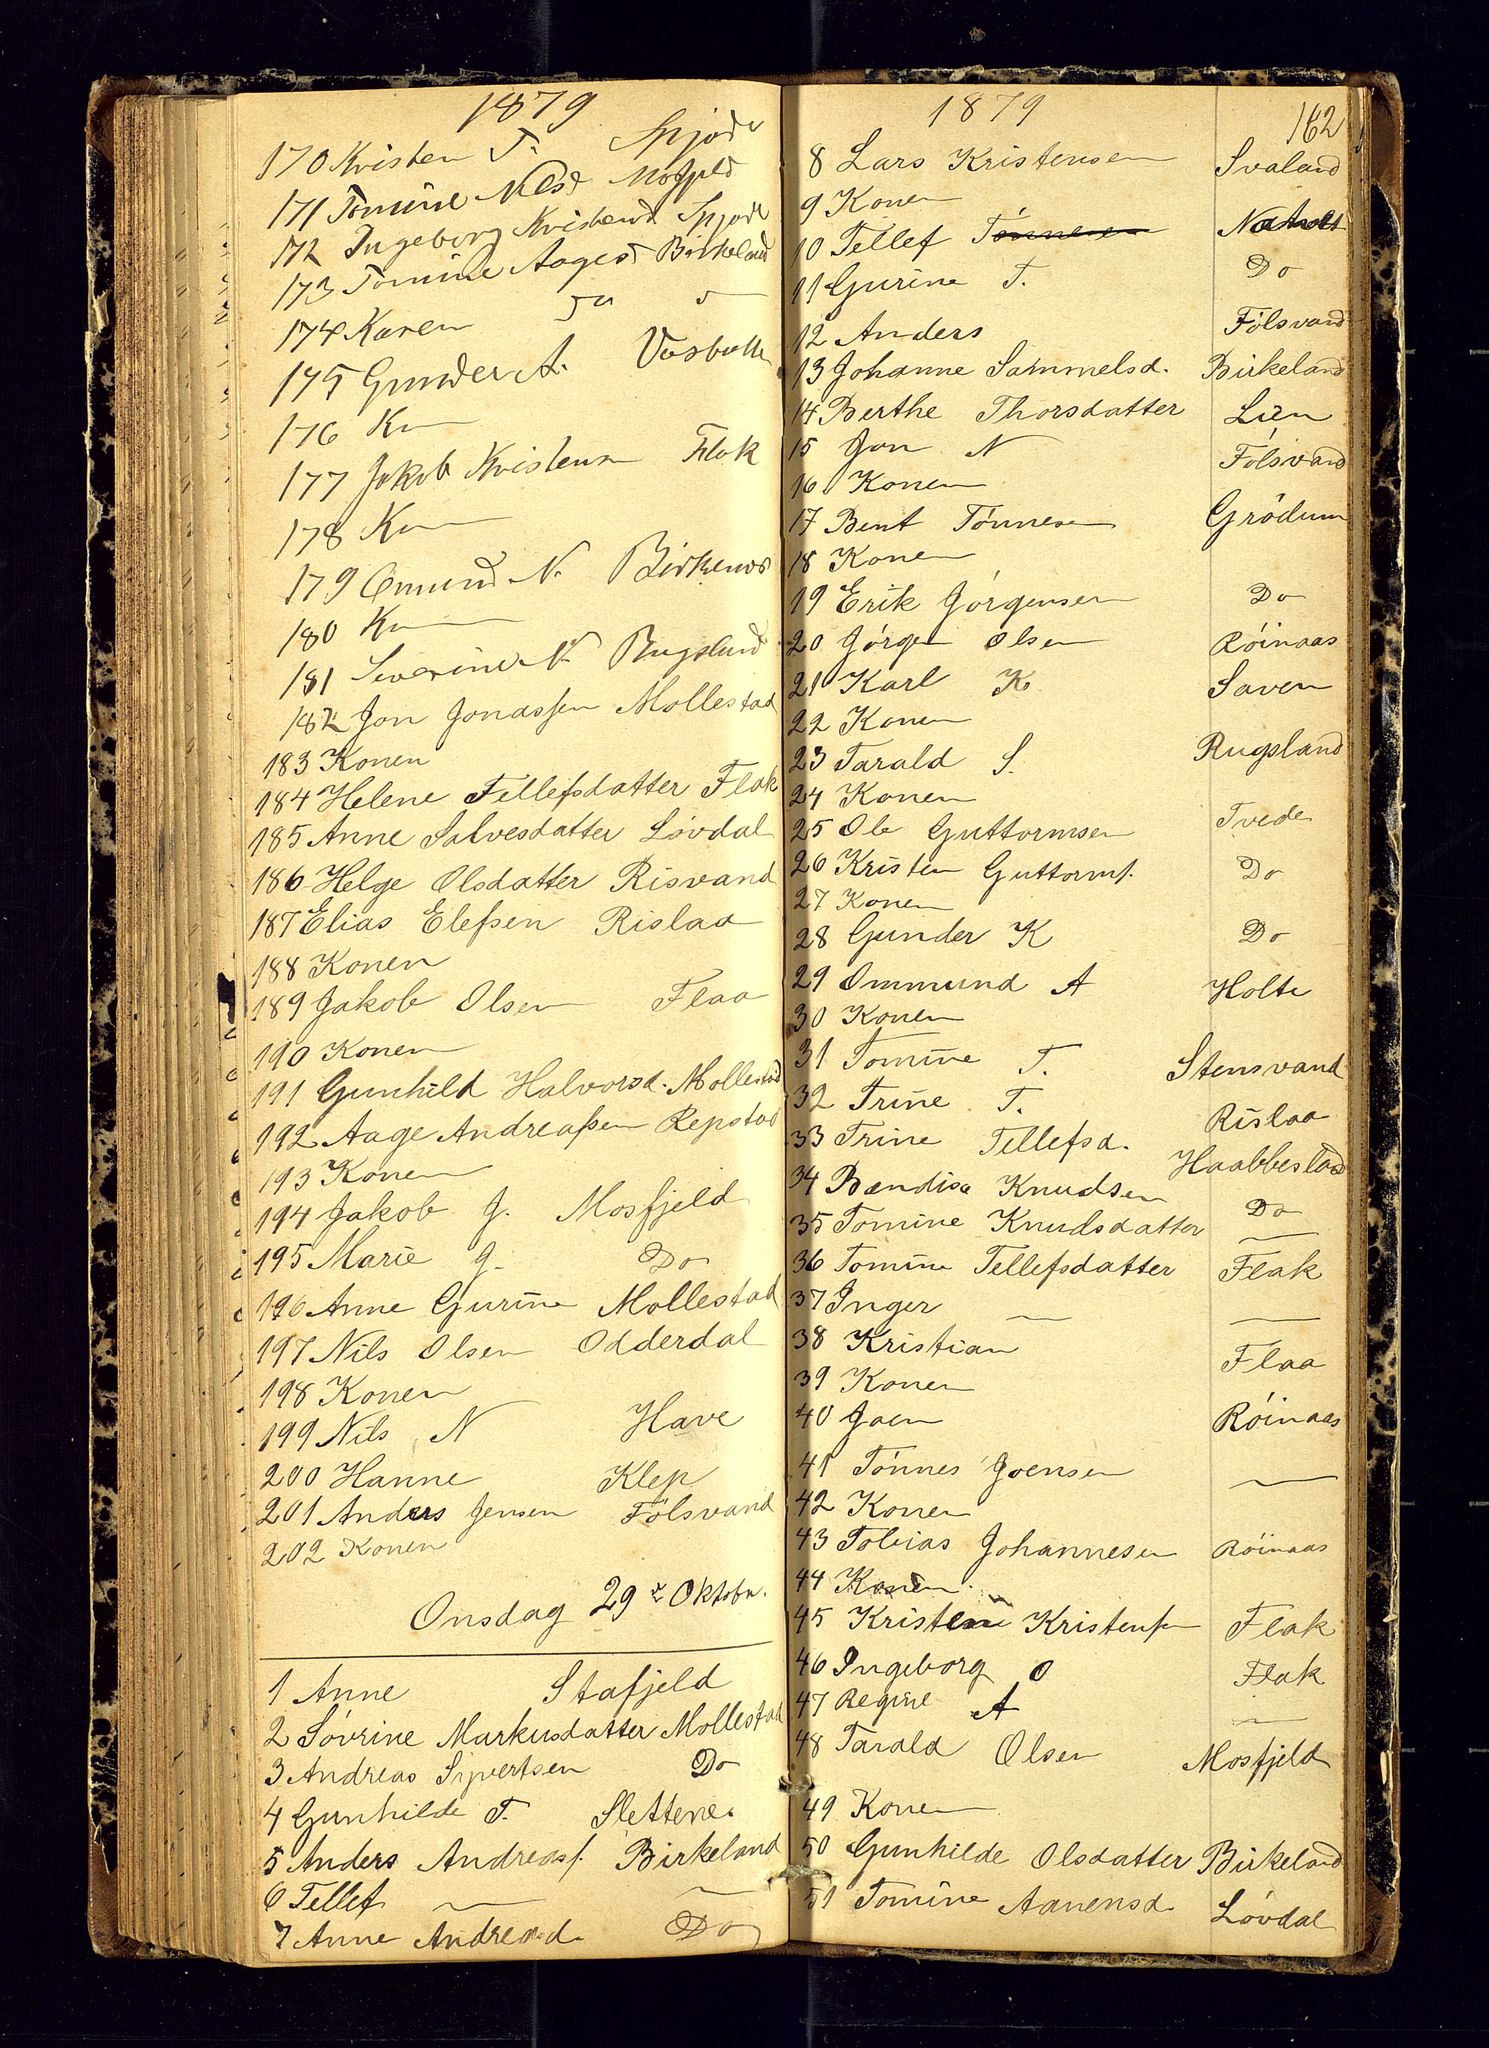 1879
170 Kristen T. Spjode
171 Tomine Nilsd Mosfjeld
172 Ingeborg Kristensd Spjode
173 Tomine Aagesd Birkeland
174 Karen
175 Gunder A. Vasbotten
176 Kn
177 Jakob Kristensen Flak
178 Kn
179 Omund N. Birkenes
180 Kn
181 Severine N. Rugsland
182 Jon Jonassen Mollestad
183 Konen
184 Helene Tellefsdatter Flak
185 Anne Salvesdatter Løvdal
186 Helge Olsdatter Risvand
187 Elias Elefsen Rislaa
188 Konen
189 Jakob Olsen Flaa
190 Konen
191 Gunhild Halvorsd. Mollestad
192 Aage Andreassen Repstad
193 Konen
194 Jakob J. Mosfjeld
195 Marie J. Do
196 Anne Gurine Mollestad
197 Nils Olsen Odderdal
198 Konen
199 Nils N Have
200 Hanne Klep
201 Anders Jensen Fölsvand
202 Konen
Onsdag 29de Oktobr.
1 Anne Stafjeld
2 Sövrine Markusdatter Mollestad
3 Andreas Sijvertsen Do
4 Gunhilde T. Slettene
5 Anders Andreasf. Birkeland
6 Tellef — —
7 Anne Andreasd. Do
1879
162
8 Lars Kristensen Svaland
9 Konen
10 Tellef Tönnesen
11 Gurine T. Do
12 Anders Fölsvand
13 Johanne Sammelsd. Birkeland
14 Berthe Thorsdatter Lien
15 Jon N Fölsvand
16 Konen
17 Bent Tönnesen Grödum
18 Konen
19 Erik Jörgensen Do
20 Jörgen Olsen Röinaas
21 Karl K Saven
22 Konen
23 Tarald S. Rugsland
24 Konen
25 Ole Guttormsen Tvede
26 Kristen Guttormf. Do
27 Konen
28 Gunder K Do
29 Ommund A Holte
30 Konen
31 Tomine T. Stensvand
32 Trine T. Rislaa
33 Trine Tellefsd. Haabbestad
34 Bendise Knudsen Do
35 Tomine Knudsdatter —
36 Tomine Tellefsdatter Flak
37 Inger — —
38 Kristian Flaa
39 Konen
40 Joen Röinaas
41 Tönnes Joensen —
42 Konen
43 Tobias Johannesen Röinaas
44 Konen.
45 Kristen Kristensen Flak
46 Ingeborg O Flak
47 Regine A —
48 Tarald Olsen Mosfjeld
49 Konen
50 Gunhilde Olsdatter Birkeland
51 Tomine Aanensd. Lövdal